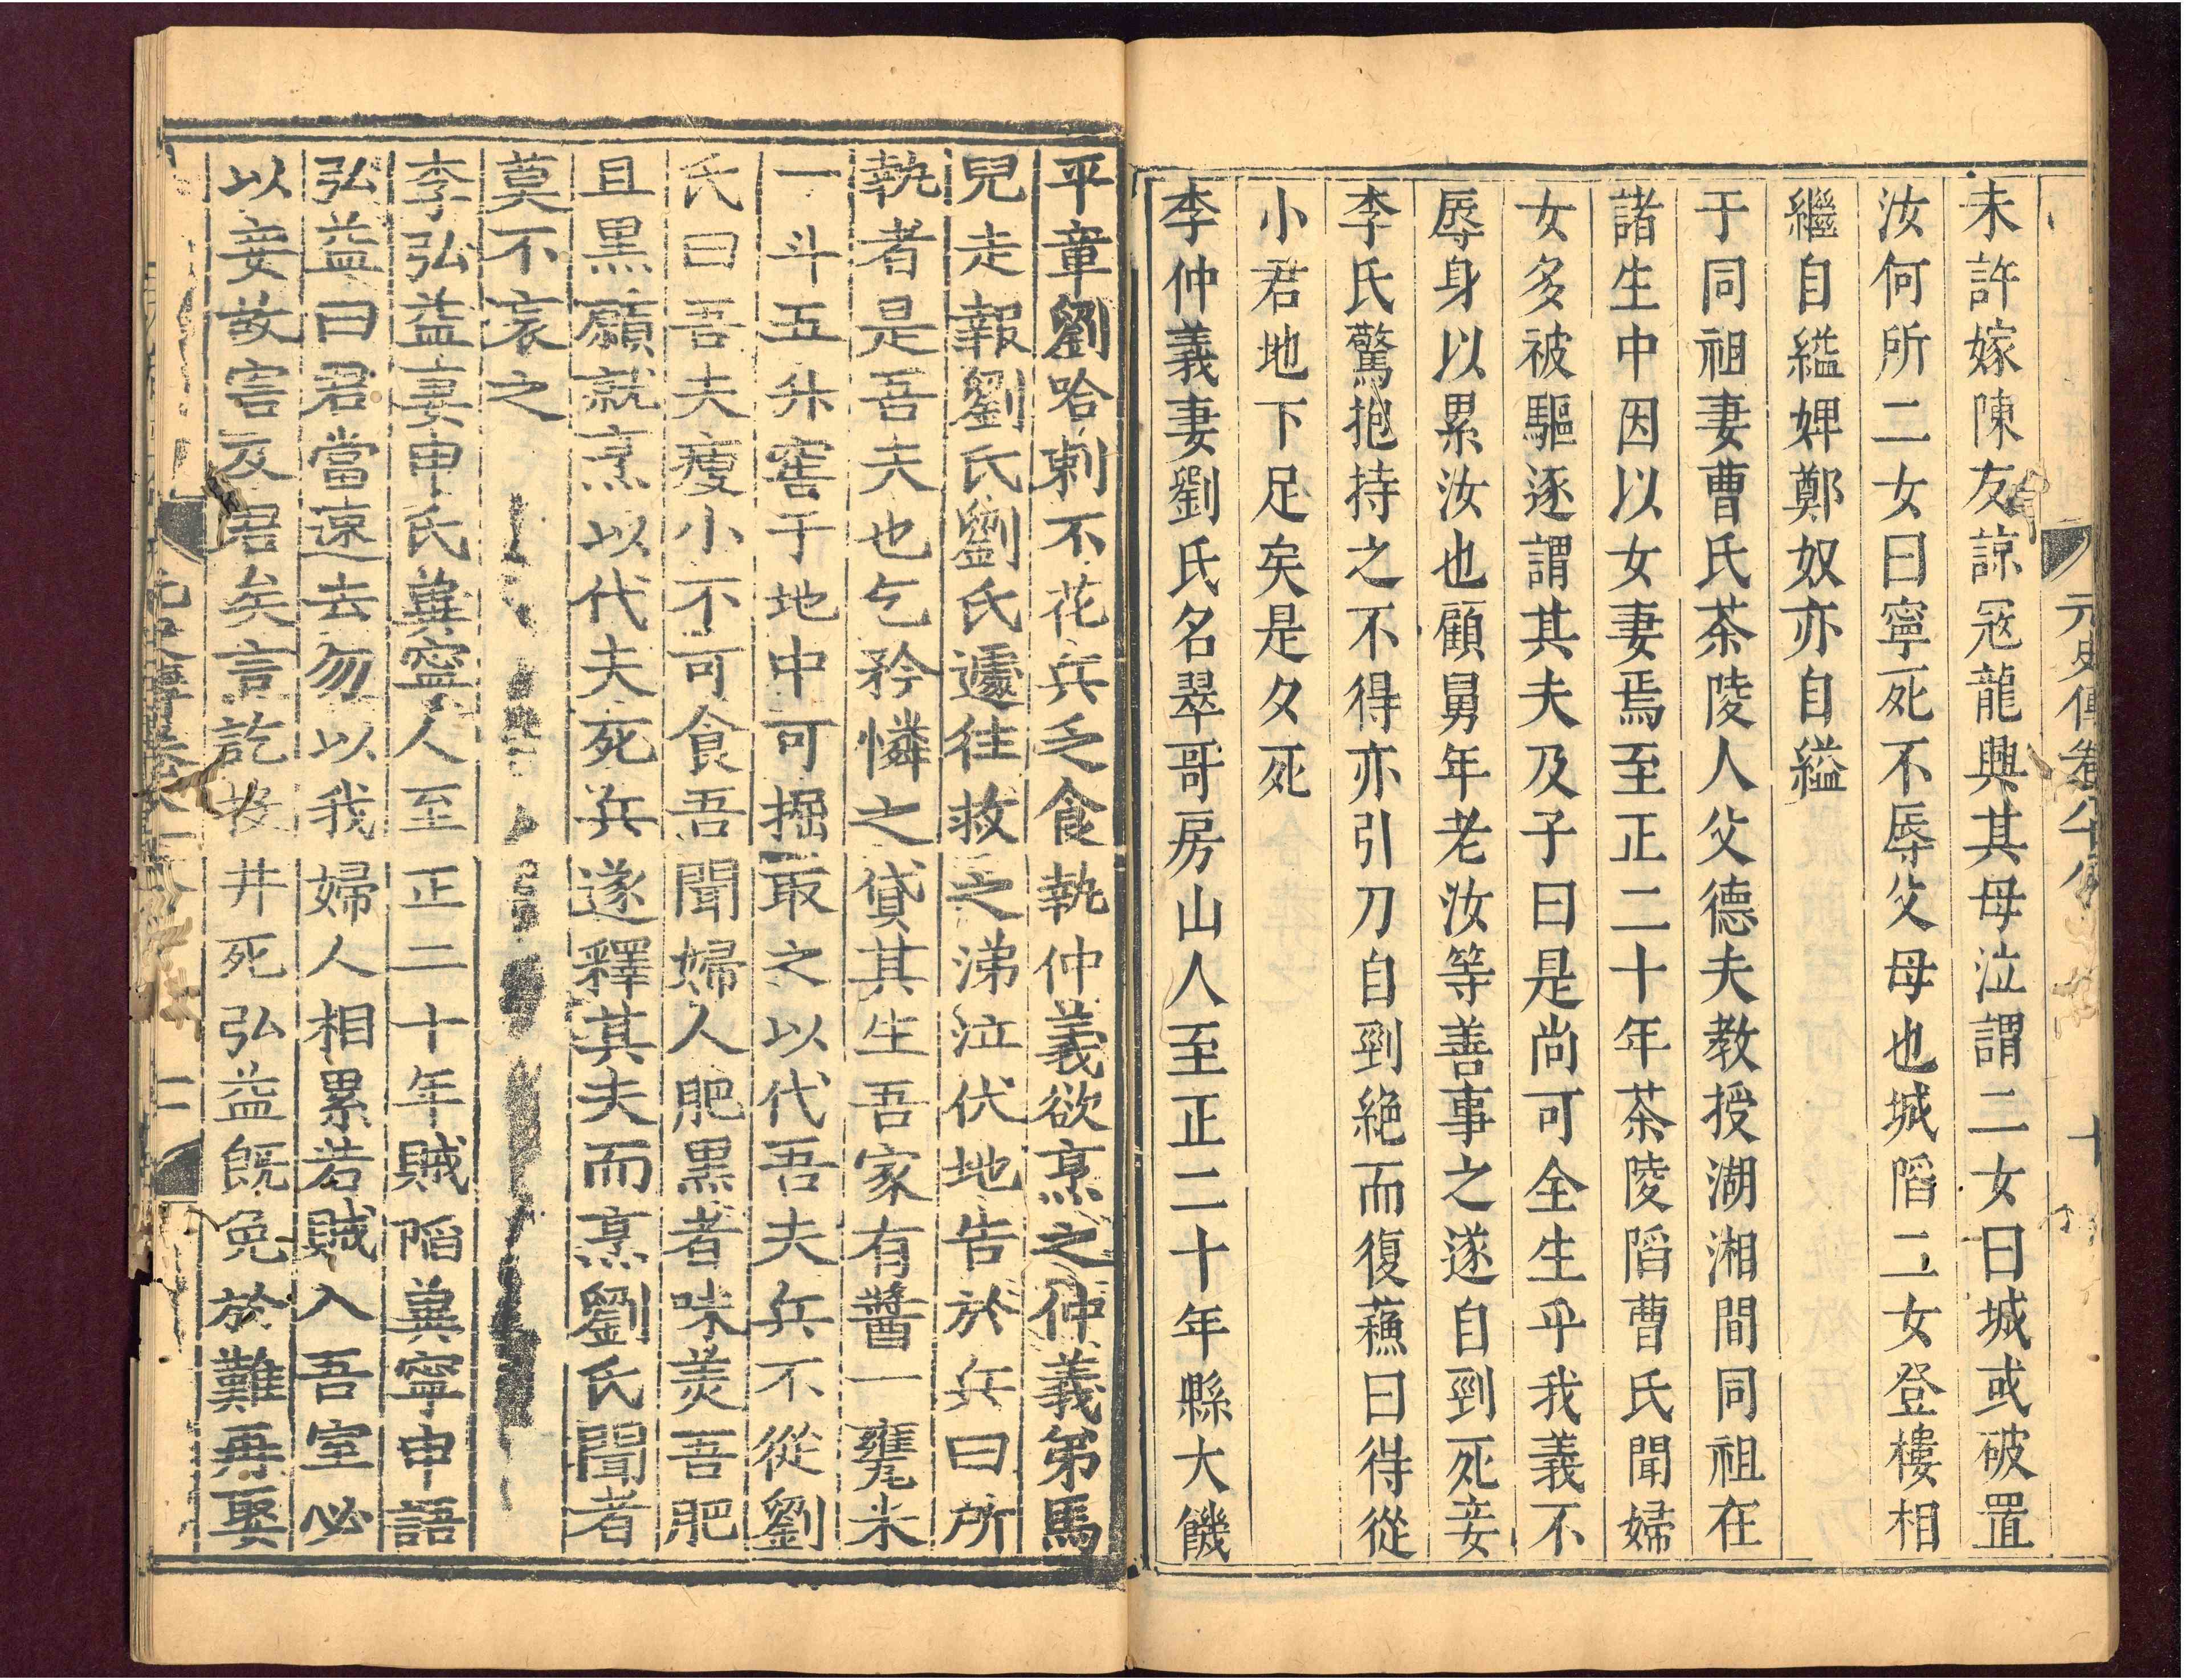 元史傳卷八十八
十
未許嫁陳友諒宼龍興其母泣謂二女曰城或破置
汝何所二女曰寧死不辱父母也城陷二女登樓相
繼自縊婢鄭奴亦自縊
于同祖妻曹氏茶陵人父德夫教授湖湘間同祖在
諸生中因以女妻焉至正二十年茶陵陷曹氏聞婦
女多被驅逐謂其夫及子曰是尚可全生乎我義不
辱身以累汝也顧舅年老汝等善事之遂自剄死妾
李氏驚抱持之不得亦引刀自剄絶而復蘓曰得從
小君地下足矣是夕死
李仲義妻劉氏名翠哥房山人至正二十年縣大饑
平章劉哈剌不花兵乏食執仲義欲烹之仲義弟馬
兒走報劉氏劉氏遽往救之涕泣伏地告於兵曰所
執者是吾夫也乞矜憐之貸其生吾家有醬一甕米
一斗五升窖于地中可掘取之以代吾夫兵不從劉
氏曰吾夫瘦小不可食吾聞婦人肥黒者味美吾肥
且黒願就烹以代夫死兵遂釋其夫而烹劉氏聞者
莫不哀之
李弘益妻申氏兾寧人至正二十年賊陷兾寧申語
弘益曰君當速去勿以我婦人相累若賊入吾室必
以妾故害及君矣言訖投井死弘益旣免於難再娶